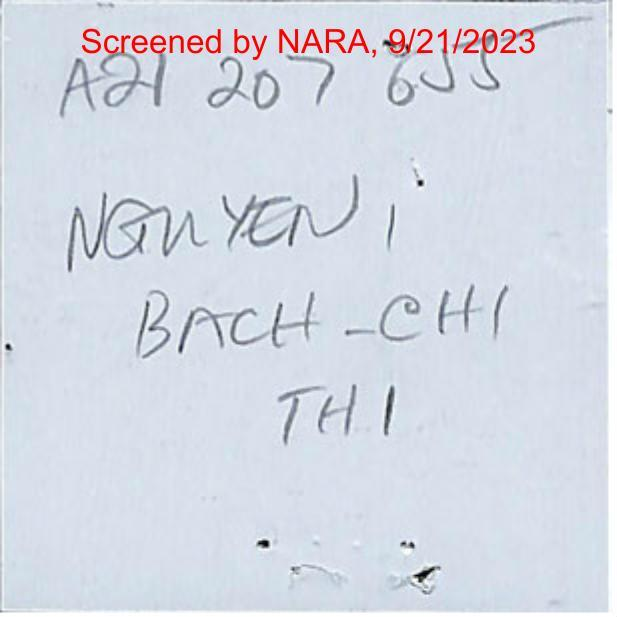 Screened by NARA, 9/21/2023
A21 207 655
NGUYEN,
BACH-CHI
THI